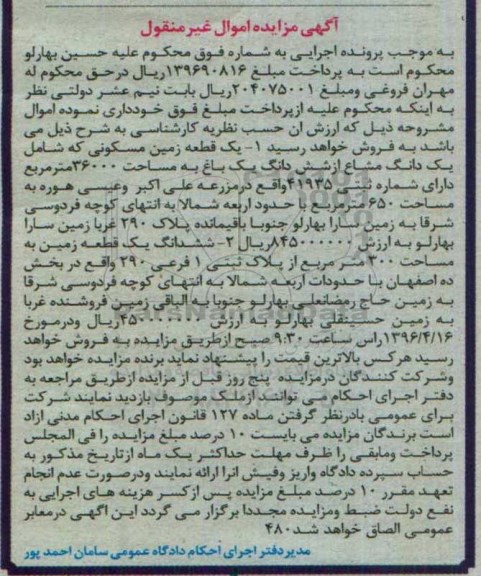 آگهی مزایده اموال غیر منقول
به موجب پرونده اجرایی به شماره فوق محکوم علیه حسین بهارلو
محکوم است به پرداخت مبلغ ۱۳۹۶۹۰۸۱۶ریال درحق محکوم له
مهران فروغی ومبلغ ۲۰۴۰۷۵۰۰۱ریال بابت نیم عشر دولتی نظر
به اینکه محکوم علیه ازپرداخت مبلغ فوق خودداری نموده اموال
مشروحه ذیل که ارزش ان حسب نظریه کارشناسی به شرح ذیل می
باشد به فروش خواهد رسید ۱- یک قطعه زمین مسکونی که شامل
یک دانگ مشاع ازشش دانگ یک باغ به مساحت ۳۶۰۰۰مترمربع
دارای شماره ثبتی ۴۱۹۳۵واقع درمزرعه علی اکبر وعیسی هوره به
مساحت ۶۵۰ مترمربع با حدود اربعه شمالا به انتهای کوچه فردوسی
شرقا به زمین سارا بهارلو جنوبا باقیمانده پلاک ۲۹۰ غربا زمین سارا
بهارلو به ارزش ۸۴۵۰۰۰۰۰۰ریال ۲- ششدانگ یک قطعه زمین به
مساحت ۳۰۰ متر مربع از پلاک ثبتی ۱ فرعی ۲۹۰ واقع در بخش
ده اصفهان با حدودات اربعه شمالا به انتهای کوچه فردوسی شرقا
به زمین حاج رمضانعلی بهارلو جنوبا به الباقی زمین فروشنده غربا
به زمین حسینقلی بهارلو به ارزش ۴۵۰۰۰۰۰۰۰ریال ودرمورخ
۱۳۹۶/۴/۱۶راس ساعت ۹:۳۰ صبح ازطریق مزایده به فروش خواهد
رسید هرکس بالاترین قیمت را پیشنهاد نماید برنده مزایده خواهد بود
وشرکت کنندگان درمزایده پنج روز قبل از مزایده ازطریق مراجعه به
دفتر اجرای احکام می توانند ازملک موصوف بازدید نمایند شرکت
برای عمومی بادرنظر گرفتن ماده ۱۲۷ قانون اجرای احکام مدنی ازاد
است برندگان مزایده می بایست ۱۰ درصد مبلغ مزایده را فی المجلس
پرداخت ومابقی را ظرف مهلت حداکثر یک ماه ازتاریخ مذکور به
حساب سپرده دادگاه واریز وفیش انرا ارائه نمایند ودرصورت عدم انجام
تعهد مقرر ۱۰ درصد مبلغ مزایده پس ازکسر هزینه های اجرایی به
نفع دولت ضبط ومزایده مجددا برگزار می گردد این اگهی درمعابر
عمومی الصاق خواهد شد۴۸۰
مدیردفتر اجرای احکام دادگاه عمومی سامان احمد پور